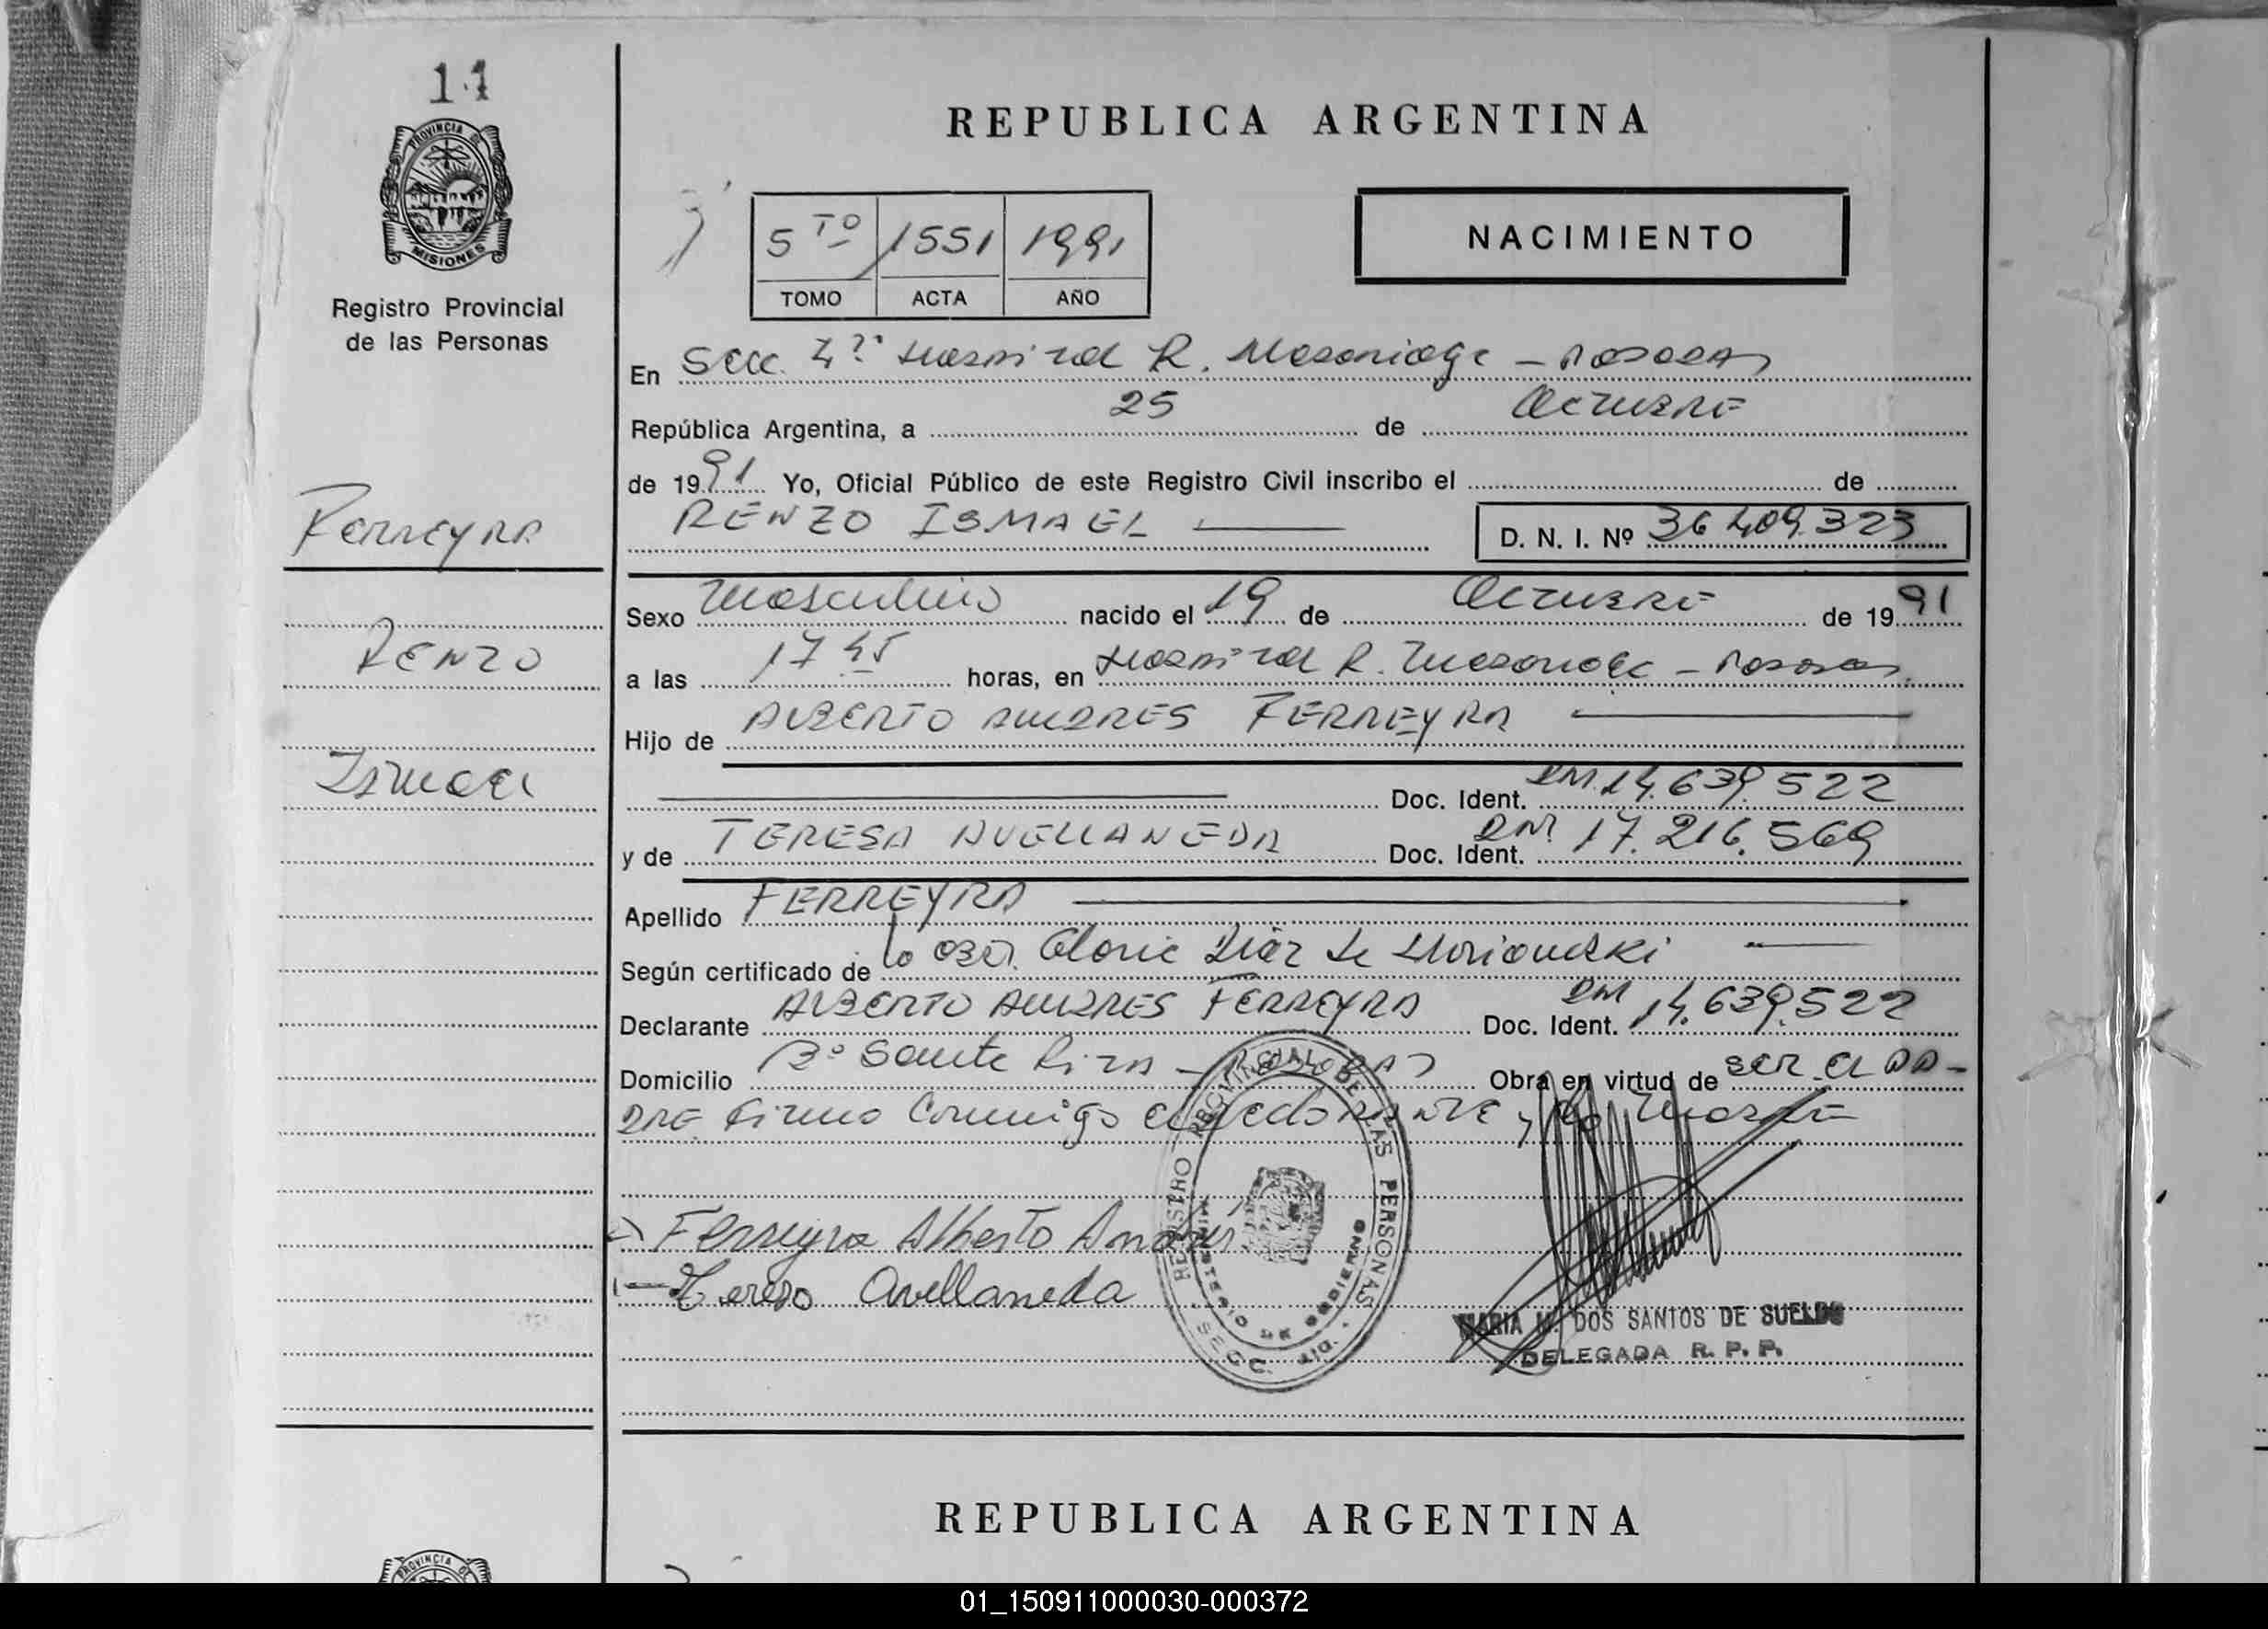 11
PROVINCIA DE
MISIONES
Registro Provincial
de las Personas
Ferreyra
Renzo
Ismael
REPUBLICA ARGENTINA
5TO 1551 1991
TOMO ACTA AÑO
NACIMIENTO
En Secc. 4ª Hospital R. Madariaga - Posadas
República Argentina, a 25 de Octubre
de 1991 Yo, Oficial Público de este Registro Civil inscribo el de
RENZO ISMAEL
D. N. I. Nº 36 409.323
Sexo Masculino nacido el 19 de Octubre de 1991
a las 17 45 horas, en Hospital R. Madariaga - Posadas
Hijo de ALBERTO ANDRES FERREYRA
Doc. Ident. DNI. 14.639.522
y de TERESA AVELLANEDA Doc. Ident. DNI 17.216.569
Apellido FERREYRA
Según certificado de la Obst. Gloria Díaz de
Declarante ALBERTO ANDRES FERREYRA Doc. Ident. DNI 14.639.522
Domicilio Bº Santa Rita - POSADAS Obra en virtud de ser el PA-
DRE Firma Conmigo el declarante y la Madre
Ferreyra Alberto Andrés
Teresa Avellaneda
REGISTRO PROVINCIAL DE LAS PERSONAS
MINISTERIO DE GOBIERNO
SECC.
MARIA M. DOS SANTOS DE SUELDO
DELEGADA R. P. P.
REPUBLICA ARGENTINA
PROVINCIA DE
01_150911000030-000372